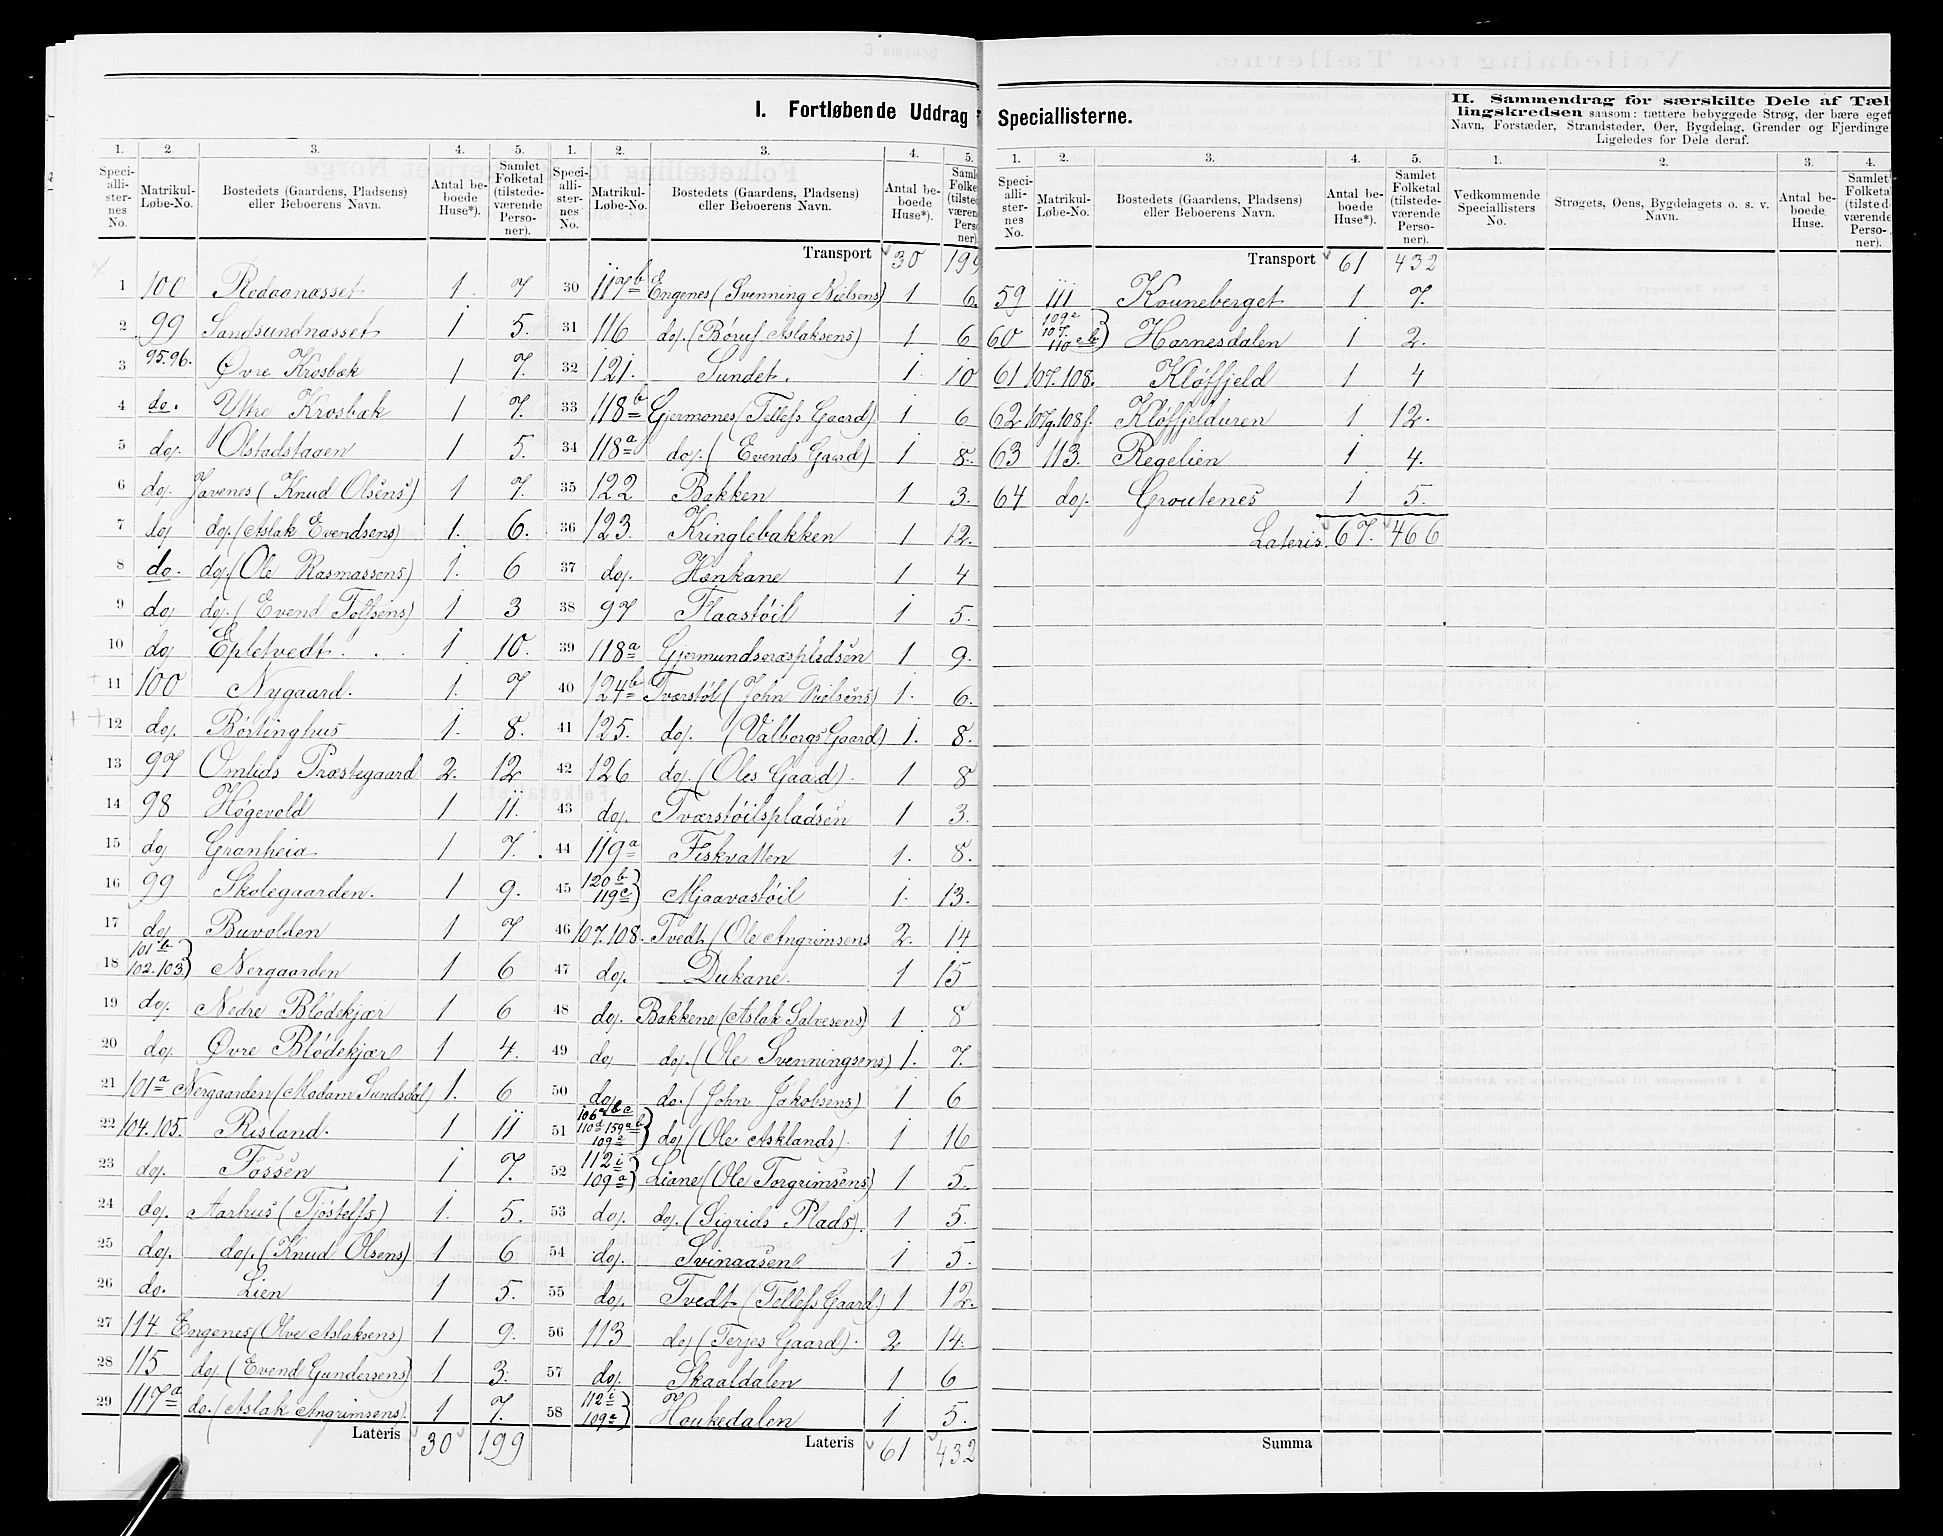 I. Fortløbende Uddrag Speciallisterne.
II. Sammendrag for særskilte Dele af Tæl-
lingskredsen saasom: tættere bebyggede Strøg, der bære eget
Navn, Forstæder, Strandsteder, Øer, Bygdelag, Grender og Fjerdinge
Ligeledes for Dele deraf.
1. 2. 3. 4. 5.
Speci-alli-ster-nes No. Matrikul-Løbe-No. Bostedets (Gaardens, Pladsens) eller Beboerens Navn. Antal be-boede Huse*). Samlet Folketal (tilstede-værende Perso-ner).
1 100 Redaanasset 1 7
2 99 Sandsundnasset 1 5.
3 95.96. Øvre Krosbæk 1 7.
4 do. Ytre Krosbæk 1 7.
5 do. Olstadstaaen 1 5.
6 do. Javenes (Knud Olsens) 1 7.
7 do do. (Aslak Evendsens) 1. 6.
8 do. do. (Ole Rasmassens) 1. 6
9 do do. (Evend Tolfsens) 1 3
10 do Epletvedt 1 10.
11 100 Nygaard. 1. 7
12 do. Børtinghus 1. 8.
13 97 Omlids Præstegaard 2. 12
14 98 Høgevold 1 11.
15 do Granheia 1 7.
16 99 Skolegaarden. 1 9.
17 do Buvolden 1 7
18 101 b 102.103) Nergaarden 1 6
19 do. Nedre Blødekjær 1 6
20 do. Øvre Blødekjær 1 4.
21 101 a Nergaarden (Madam Sundsdal) 1. 6
22 104.105. Risland. 1 11
23 do. Fossen 1 7.
24 do. Aarhus (Tjøstelfs) 1. 5.
25 do. do. (Knud Olsens) 1 6
26 do. Lien 1 5.
27 114. Engenes (Olve Aslaksens) 1 9.
28 115 do. (Evend Gundersens) 1 3.
29 117 a do. (Aslak Angrimsens). 1 7.
Lateris 30 199
1. 2. 3. 4. 5.
Speci-alli-ster-nes No. Matrikul-Løbe-No. Bostedets (Gaardens, Pladsens) eller Beboerens Navn. Antal be-boede Huse*).
Transport 30 199
30 117 b Engenes (Svenning Nielsens) 1 6.
31 116 do. (Børuf Aslaksens) 1 6
32 121. Sundet. 1. 10
33 118 b Gjermones (Tellefs Gaard) 1 6
34 118 a do. (Evends Gaard) 1 8.
35 122 Bakken 1 3.
36 123. Kringlebakken 1 12.
37 do. Hænkane 1 4
38 97 Flaastøil 1 5.
39 118 a Gjermundsnæspladsen 1 9.
40 124 b Tværstøl (John Nielsens) 1. 6.
41 125. do. (Valborgs Gaard) 1. 8.
42 126 do. (Oles Gaard). 1 8
43 do. Tværstøilspladsen 1 3.
44 119 a Fiskvatten 1. 8.
45 120 b 119 c) Mjaavastøil 1. 13.
46 107.108. Tvedt (Ole Angrimsens 2. 14
47 do. Dukane. 1 15
48 do. Bakkene (Aslak Salvesens) 1 8
49 do do. (Ole Svenningsens) 1. 7.
50 do. do. (John Jakobsens) 1 6
51 do (Ole Asklands). 1 16
52 112 i 109 a) Liane (Ole Torgrimsens) 1 5.
53 do. do. (Sigrids Plads). 1 5.
54 do. Svinaasen 1 5.
55 do. Tvedt (Tellefs Gaard) 1 12.
56 113 do (Terjes Gaard). 2 14.
57 do. Skaaldalen 1 6
58 112 i 109 a) Houkedalen 1 5.
Lateris 61 432
1. 2. 3. 4. 5.
Speci-alli-ster-nes No. Matrikul-Løbe-No. Bostedets (Gaardens, Pladsens) eller Beboerens Navn. Antal be-boede Huse*). Samlet Folketal (tilstede-værende Perso-ner).
Transport 61 432
59 111 Kouneberget 1 7.
60 Harnesdalen 1 2.
61 107.108. Kløffjeld 1 4
62 107g.108f. Kløffjelduren 1 12.
63 113. Regelien 1 4.
64 do. Groutenes 1 5.
Lateris. 67. 466
Summa
1. 2. 3. 4.
Vedkommende Speciallisters No. Strøgets, Øens, Bygdelagets o. s. v. Navn. Antal be-boede Huse. Samlet Folketal (tilsted-værende Perso-ner).